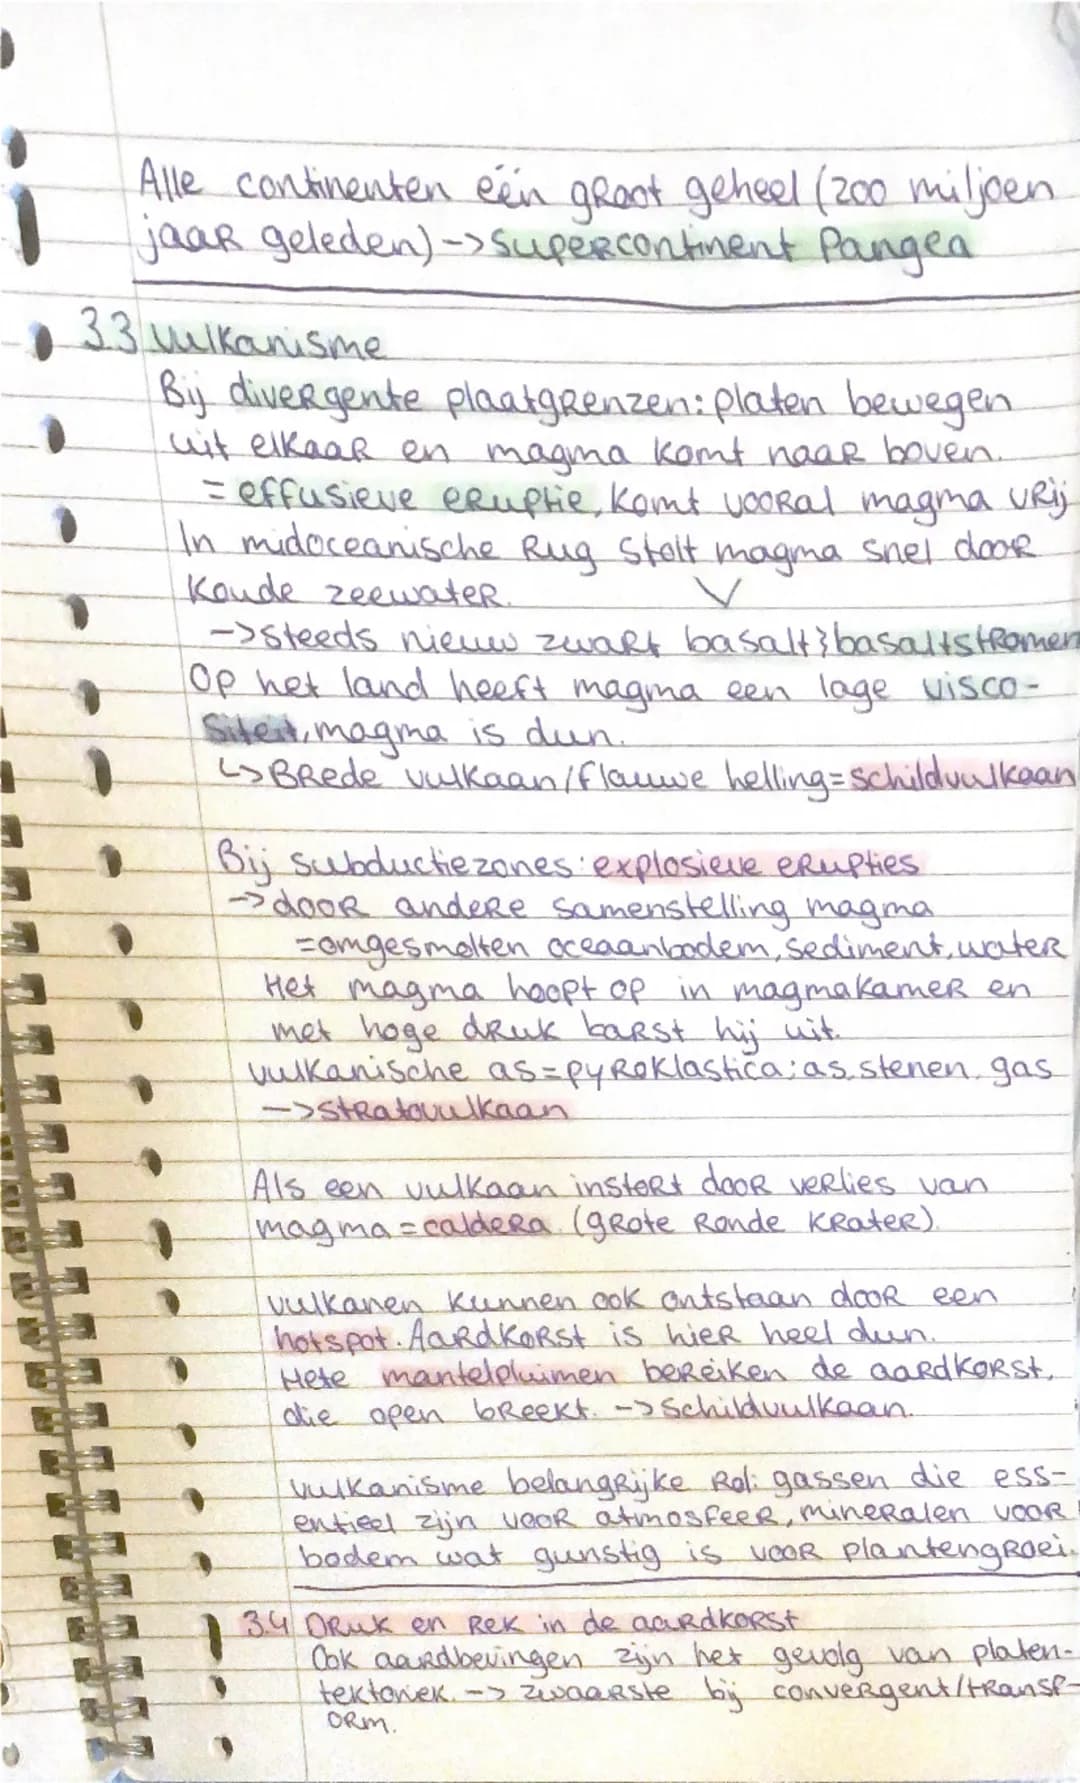 Alle continenten één groot geheel (200 miljoen
jaar geleden) -> supercontinent Pangea
3.3 Vulkanisme
Bij divergente plaatgrenzen: platen bewegen
uit elkaar en magma komt naar boven.
= effusieve eruptie, komt vooral magma vrij
In midoceanische Rug stolt magma snel door
koude zeewater.
-> steeds nieuw zwart basalt } basaltstromen
Op het land heeft magma een lage visco-
siteit, magma is dun.
↳ Brede vulkaan/flauwe helling = schildvulkaan
Bij subductiezones: explosieve erupties
-> door andere samenstelling magma
= omgesmolten oceaanbodem, sediment, water
Het magma hoopt op in magmakamer en
met hoge druk barst hij uit.
vulkanische as = pyroklastica: as, stenen, gas
-> stratovulkaan
Als een vulkaan instort door verlies van
magma = caldera. (grote ronde krater).
vulkanen kunnen ook ontstaan door een
hotspot. Aardkorst is hier heel dun.
Hete mantelpluimen bereiken de aardkorst,
die open breekt. -> schildvulkaan.
vulkanisme belangrijke rol: gassen die ess-
entieel zijn voor atmosfeer, mineralen voor
bodem wat gunstig is voor plantengroei.
3.4 Druk en Rek in de aardkorst
Ook aardbevingen zijn het gevolg van platen-
tektoniek. -> zwaarste bij convergent/transf-
orm.